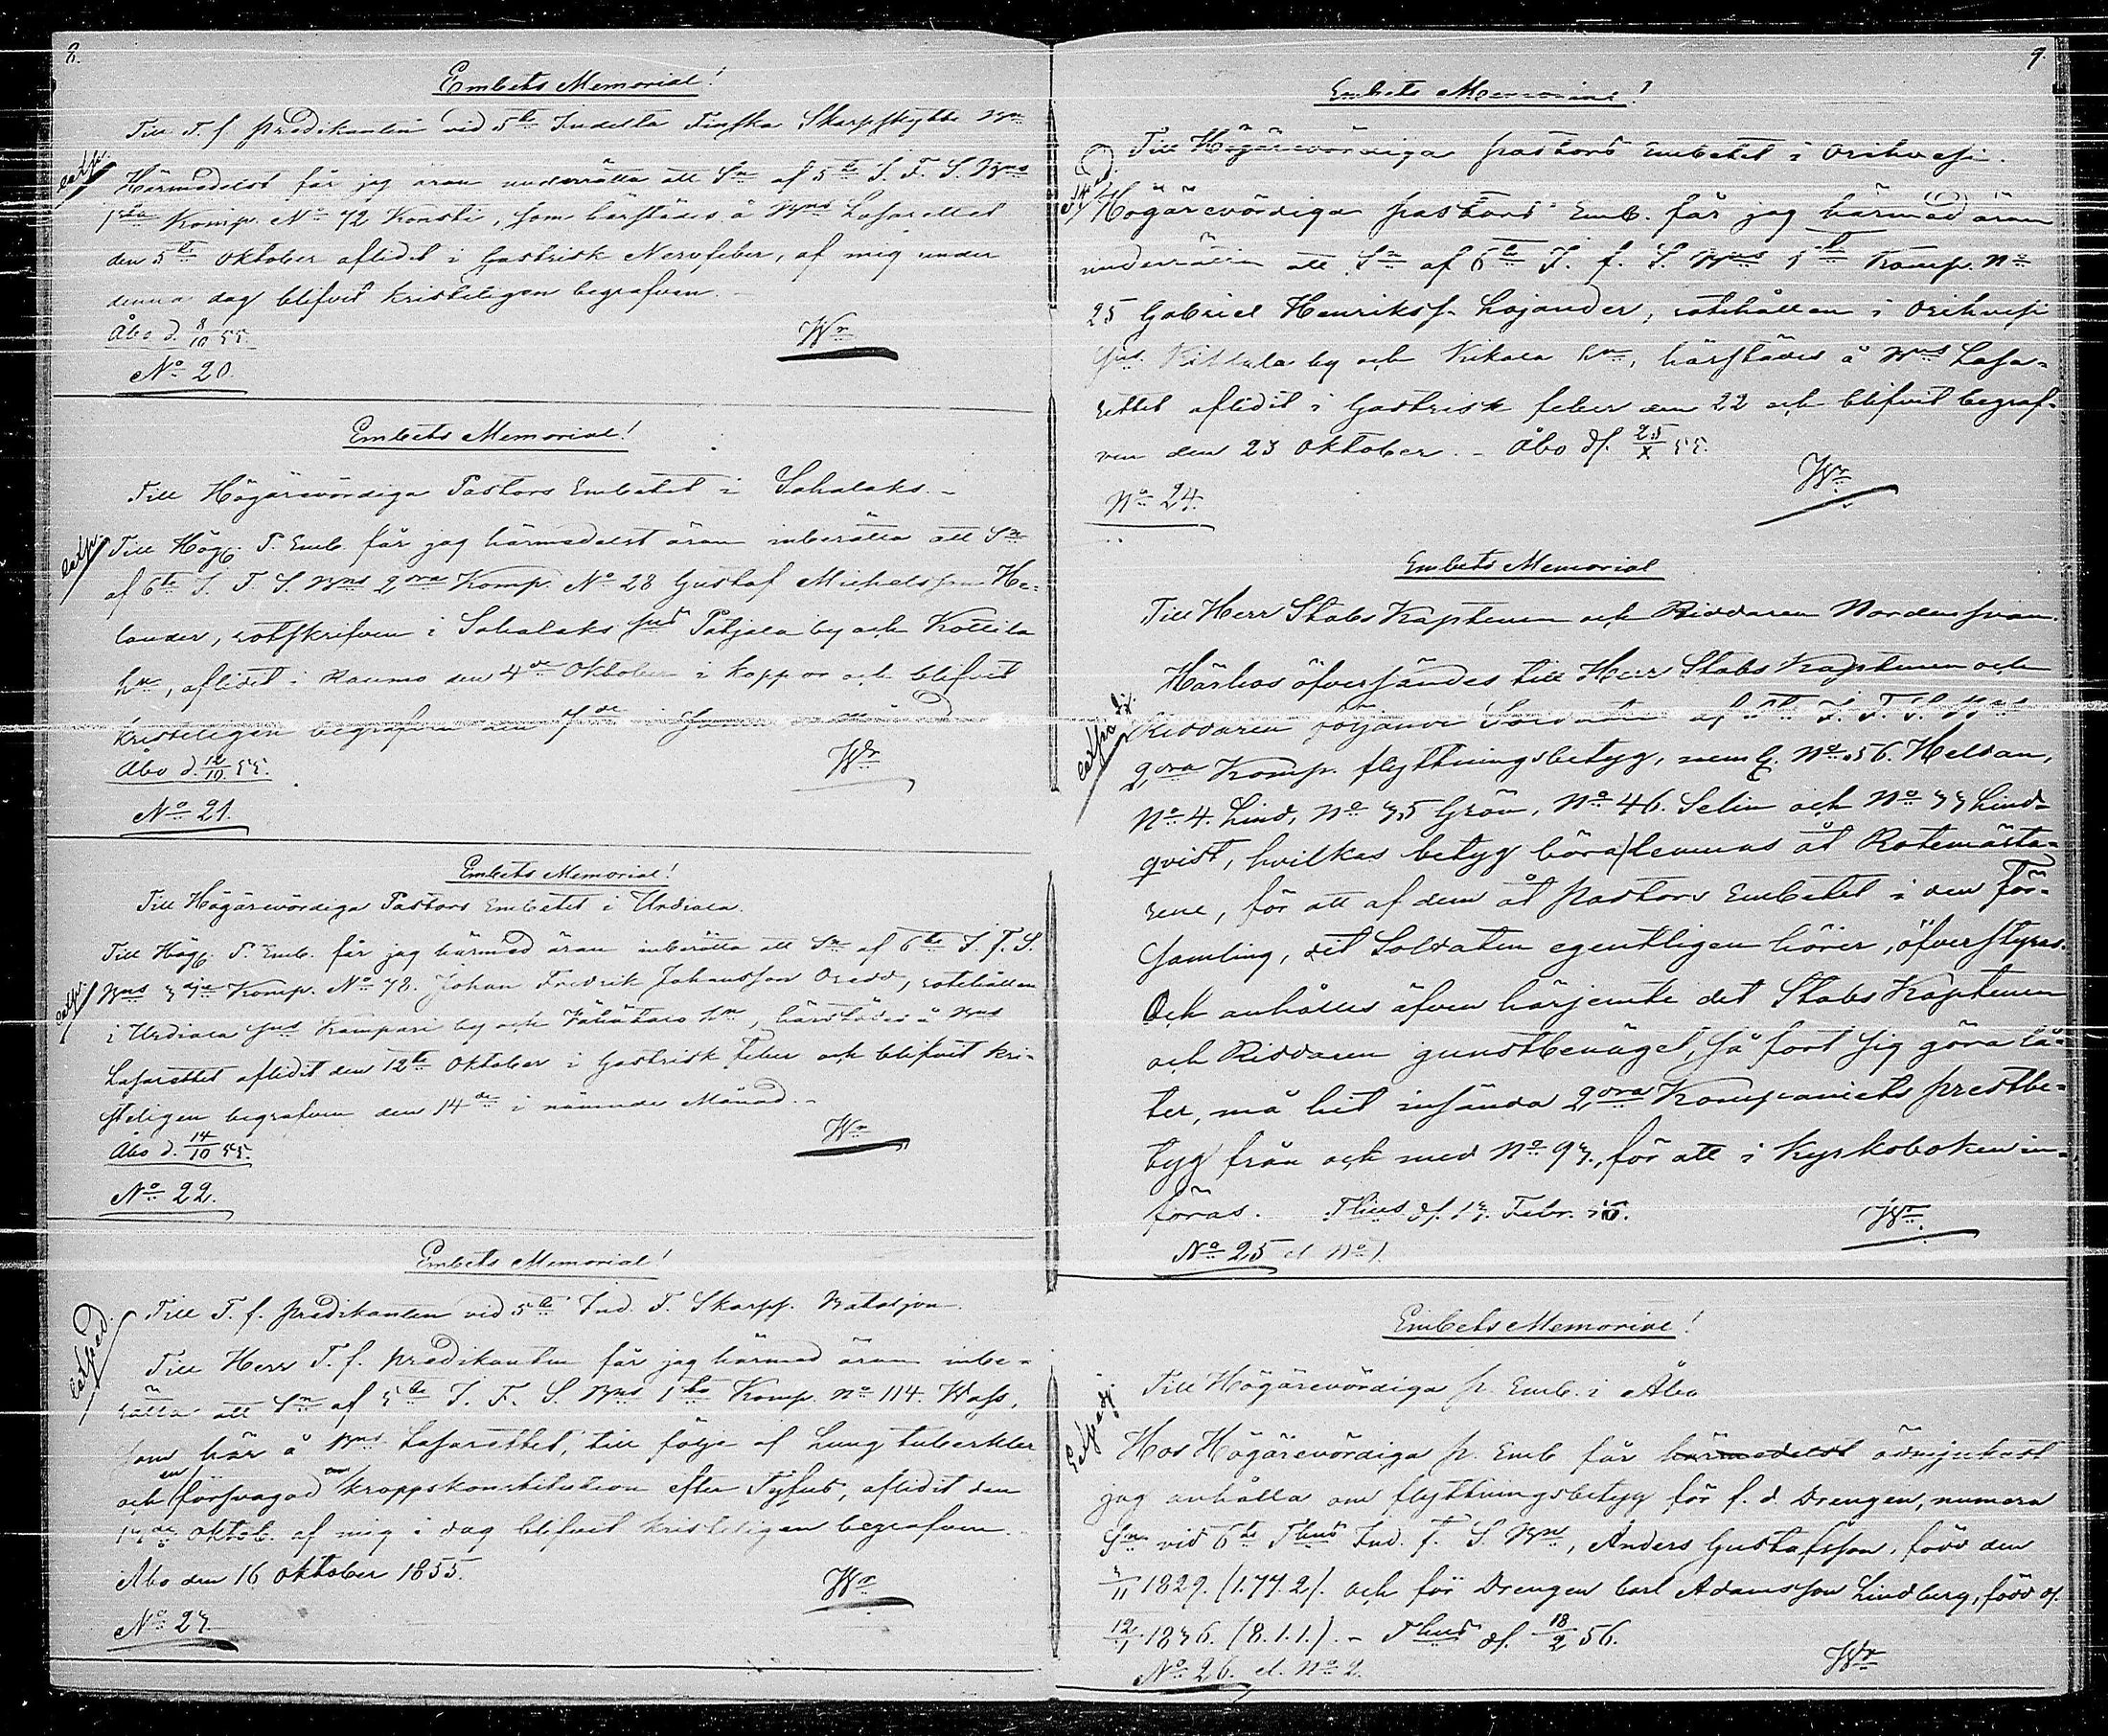 8.
Embets Memorial!
Till T. f. predikanten vid 5te Indelta Finska Skarpskytte Bn
exp.
Härmedelst får jag äran underrätta att Sn af 5te I. F. S. Bns
1sta Komp. No 72 Konsti, som härstädes å Bns Lasarettet
den 5te Oktober aflidit i Gastrisk Nervfeber, af mig under
denna dag blifvit kristeligen begrafven.
Åbo d. 8/10 55. Wn
No 20.
Embets Memorial!
Till Högärevördiga Pastors Embetet i Sahalaks. –
exp.
Till Högl. P. Emb. får jag härmedelst äran inberätta att Sn
af 6te I. F. S. Bns 2dra Komp. No 28 Gustaf Michelsson He-
lander, rotskrifven i Sahalaks sns Pakjala by och Kottila
hn, aflidit i Raumo den 4de Oktober i koppor och blifvit
kristeligen begrafven den 7de i
Åbo d. 12/10 55. Wn
No 21.
Embets Memorial!
Till Högärevördiga Pastors Embetet i Urdiala.
exp.
Till Högl. P. Emb. får jag härmed äran inberätta att Sn af 6te I. F. S.
Bns 3dje Komp. No 78. Johan Fredrik Johansson Oredd, rotehållen
i Urdiala sns Kampari by och hn, härstädes å Bns
Lasarettet aflidit den 12te Oktober i Gastrisk feber och blifvit kri-
steligen begrafven den 14de i nämnde Månad. –
Åbo d. 14/10 55. Wn
No 22.
Embets Memorial!
Till T. f. predikanten vid 5te Ind. F. Skarpf. Bataljon.
exped.
Till Herr T. f. predikanten får jag härmed äran inbe-
rätta att Sn af 5te I. F. S. Bns 1sta Komp. No 114. Wass,
som här å Bns Lasarettet, till följe af Lungtuberkler
och en försvagad kroppskonstitution efter Tyfus, aflidit den
13de Oktob. af mig i dag blifvit kristeligen begrafven.
Åbo den 16 Oktober 1855. Wn
No 23.
9.
Embets Memorial!
Till Högärevördiga pastors Embetet i Orihvesi.
Högärevördiga pastors Emb. får jag härmed äran
underrätta att Sn af 6te I. F. S. Bns 1sta Komp. No
25 Gabriel Henrikss. Lojander, rotehållen i Orihvesi
sns by och hn, härstädes å Bns Lasa-
rettet aflidit i Gastrisk feber den 22 och blifvit begraf-
ven den 23 Oktober. – Åbo d. 25/X 55.
Wn
No 24.
Embets Memorial
Till Herr Stabs Kaptenen och Riddaren Nordensvan.
exped.
Härhos öfversändes till Herr Stabs Kaptenen och
Riddaren följande Soldaters af 6te I. F. S. Bns
2dra Komp. flyttningsbetyg, neml. No 56. Heldan,
No 4. Lind, No 35 Grön, No 46. Selin och No 33 Lind-
qvist, hvilkas betyg böra lemnas åt Rotemästa-
rene, för att af dem åt Pastors Embetet i den För-
samling, dit Soldaten egentligen hörer, öfverstyras.
Och anhålles äfven härjemte det Stabs Kaptenen
och Riddaren gunstbenäget, så fort sig göra lå-
ter, må hit insända 2dra Kompaniets prestbe-
tyg från och med No 93., för att i Kyrkoboken in-
föras. Thus d. 13. Febr. 56. Wn
No 25 et No 1.
Embets Memorial!
Till Högärevördiga p. Emb. i Åbo
Exped.
Hos Högärevördiga p. Emb får härmedelst ödmjukast
jag anhålla om flyttningsbetyg för f. d. Drengen, numera
Sn vid 6te Thus Ind. F. S. Bn, Anders Gustafsson, född den
3/11 1829. (1.77.2). och för Drengen Carl Adamsson Lindberg, född d.
12/1 1836. (8.1.1.). – Thus d. 18/2 56.
Wn
No 26. et No 2.